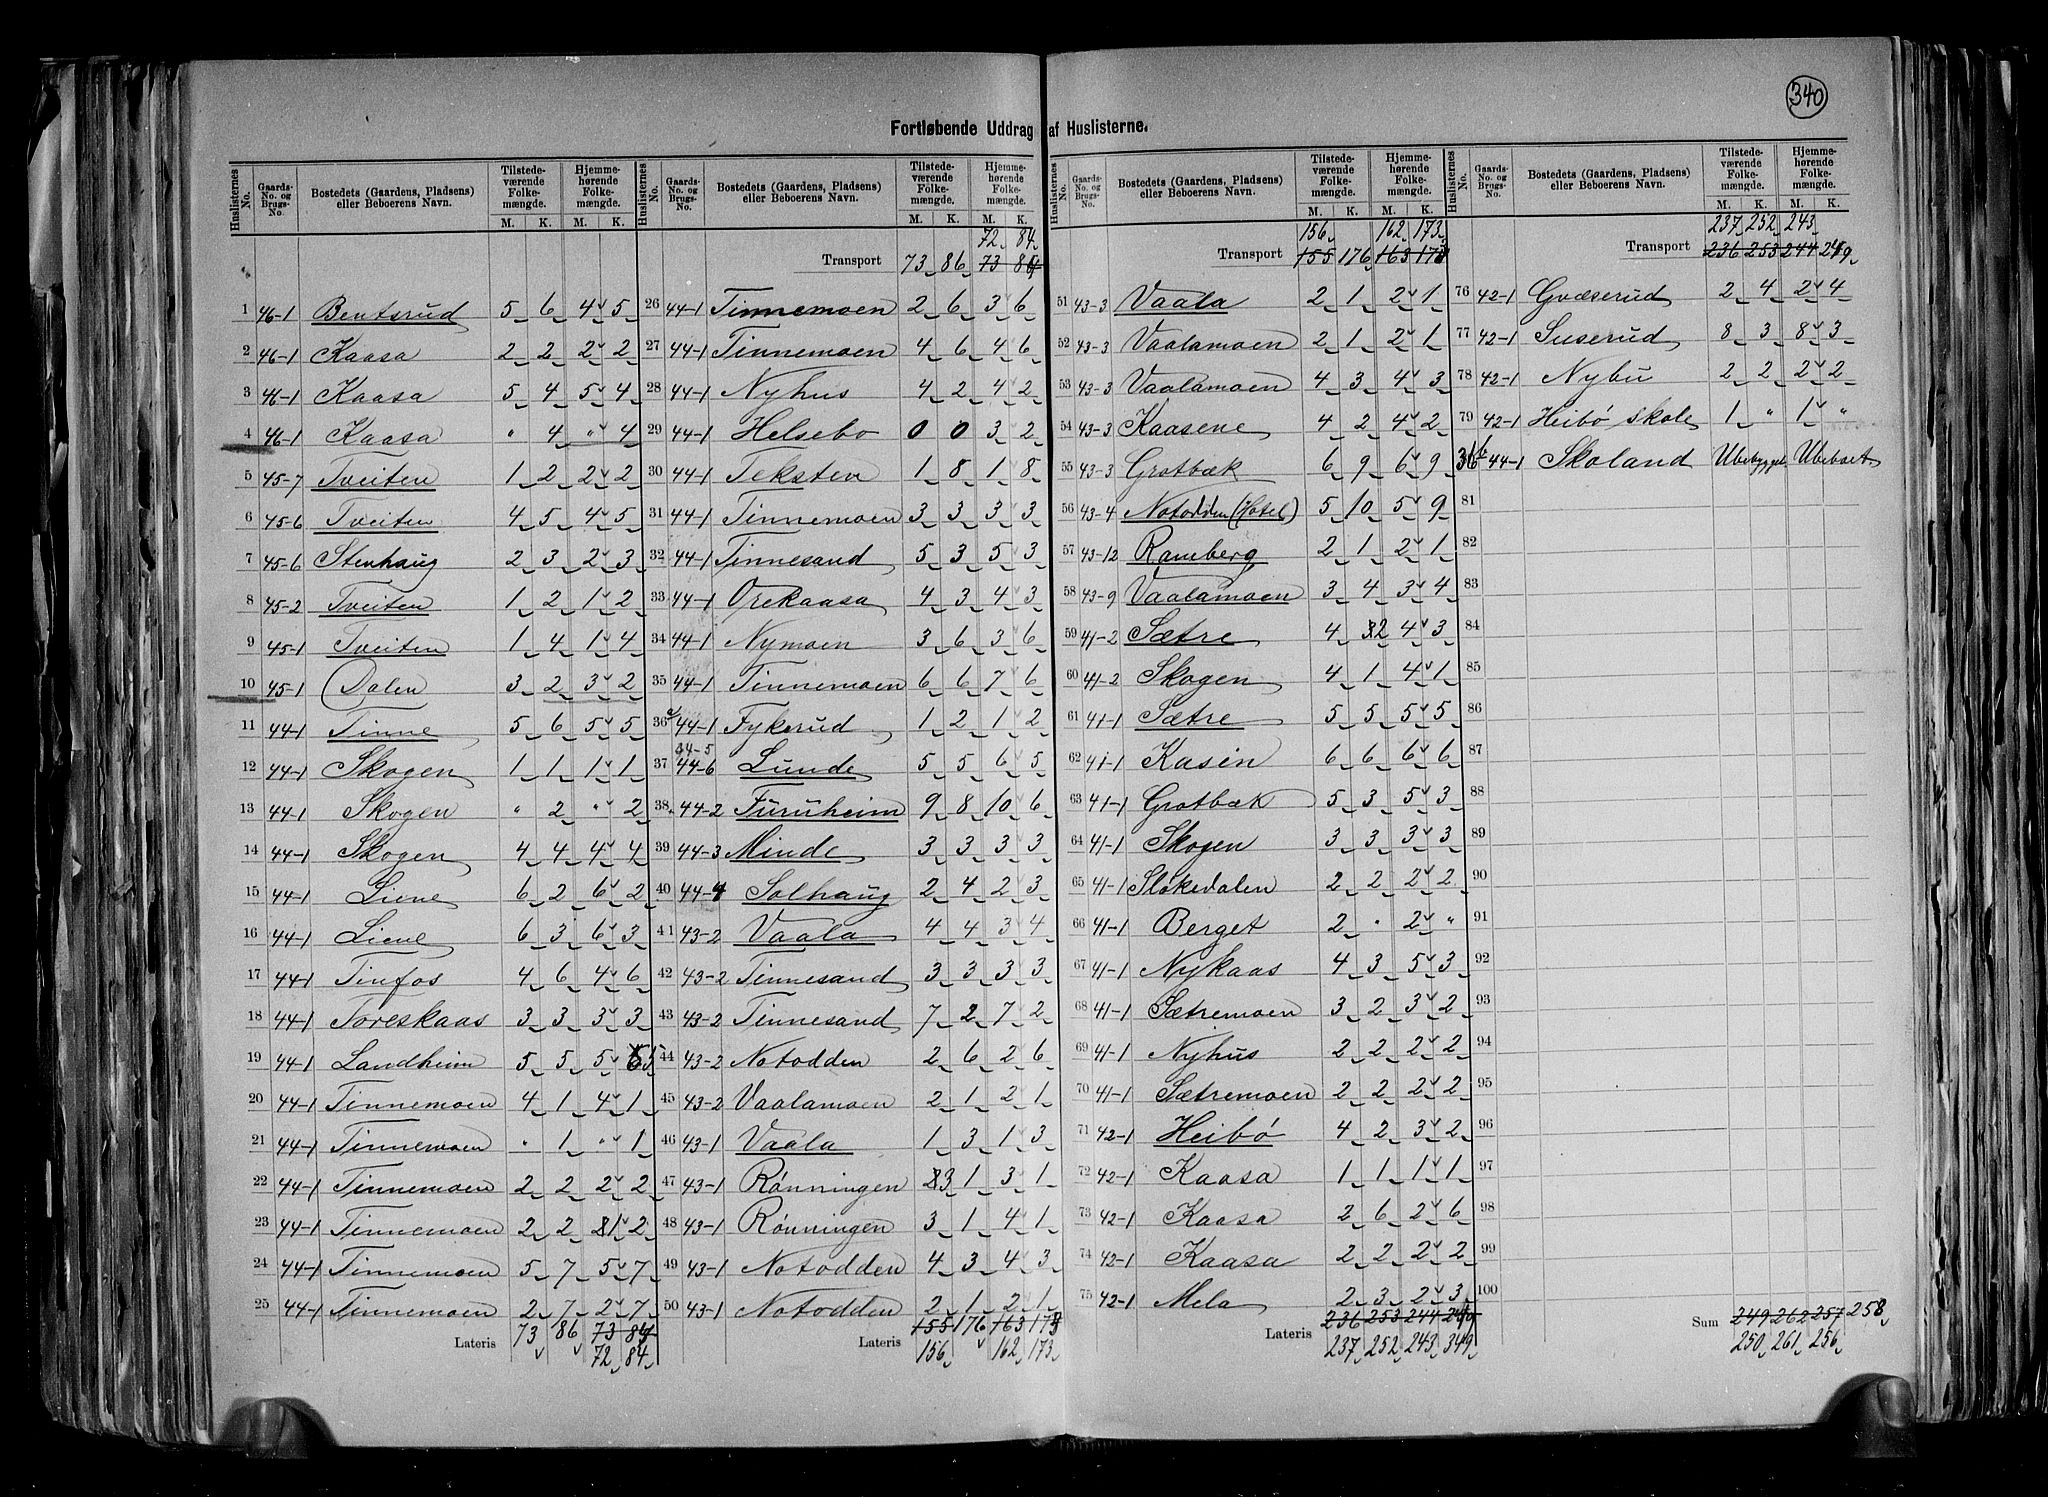 340
Fortløbende Uddrag af Huslisterne.
Huslisternes No. Gaards-No. og Brugs-No. Bostedets (Gaardens, Pladsens) eller Beboerens Navn. Tilstedeværende Folkemængde. M. K. Hjemmehørende Folkemængde. M. K.
1 46-1 Bentsrud 5 6 4 5
2 46-1 Kaasa 2 2 2 2
3 46-1 Kaasa 5 4 5 4
4 46-1 Kaasa " 4 " 4
5 45-7 Tveiten 1 2 2 2
6 45-6 Tveiten 4 5 4 5
7 45-6 Stenhaug 2 3 2 3
8 45-2 Tveiten 1 2 1 2
9 45-1 Tveiten 1 4 1 4
10 45-1 Dalen 3 2 3 2
11 44-1 Tinne 5 6 5 5
12 44-1 Skogen 1 1 1 1
13 44-1 Skogen " 2 " 2
14 44-1 Skogen 4 4 4 4
15 44-1 Liene 6 2 6 2
16 44-1 Liene 6 3 6 3
17 44-1 Tinfos 4 6 4 6
18 44-1 Toreskaas 3 3 3 3
19 44-1 Landheim 5 5 5 5
20 44-1 Tinnemoen 4 1 4 1
21 44-1 Tinnemoen " 1 " 1
22 44-1 Tinnemoen 2 2 2 2
23 44-1 Tinnemoen 2 2 1 2
24 44-1 Tinnemoen 5 7 5 7
25 44-1 Tinnemoen 2 7 2 7
Lateris 73 86 73 84
72 84
Huslisternes No. Gaards-No. og Brugs-No. Bostedets (Gaardens, Pladsens) eller Beboerens Navn. Tilstedeværende Folkemængde. M. K. Hjemmehørende Folkemængde. M. K.
72 84
Transport 73 86 73 84
26 44-1 Tinnemoen 2 6 3 6
27 44-1 Tinnemoen 4 6 4 6
28 44-1 Nyhus 4 2 4 2
29 44-1 Helsebo 0 0 3 2
30 44-1 Teksten 1 8 1 8
31 44-1 Tinnemoen 3 3 3 3
32 44-1 Tinnesand 5 3 5 3
33 44-1 Orekaasa 4 3 4 3
34 44-1 Nymoen 3 6 3 6
35 44-1 Tinnemoen 6 6 7 6
36a 44-1 Fykerud 1 2 1 2
44-5
37 44-6 Lunde 5 5 6 5
38 44-2 Furuheim 9 8 10 6
39 44-3 Minde 3 3 3 3
40 44-4 Solhaug 2 4 2 3
41 43-2 Vaala 4 4 3 4
42 43-2 Tinnesand 3 3 3 3
43 43-2 Tinnesand 7 2 7 2
44 43-2 Notodden 2 6 2 6
45 43-2 Vaalamoen 2 1 2 1
46 43-1 Vaala 1 3 1 3
47 43-1 Rønningen 3 1 3 1
48 43-1 Rønningen 3 1 4 1
49 43-1 Notodden 4 3 4 3
50 43-1 Notodden 2 1 2 1
Lateris 155 176 163 173
156 162 173
Huslisternes No. Gaards-No. og Brugs-No. Bostedets (Gaardens, Pladsens) eller Beboerens Navn. Tilstedeværende Folkemængde. M. K. Hjemmehørende Folkemængde. M. K.
156 162 173
Transport 155 176 163 173
51 43-3 Vaala 2 1 2 1
52 43-3 Vaalamoen 2 1 2 1
53 43-3 Vaalamoen 4 3 4 3
54 43-3 Kaasene 4 2 4 2
55 43-3 Grotbæk 6 9 6 9
56 43-4 Notodden (Hotel) 5 10 5 9
57 43-12 Ramberg 2 1 2 1
58 43-9 Vaalamoen 3 4 3 4
59 41-2 Sætre 4 2 4 3
60 41-2 Skogen 4 1 4 1
61 41-1 Sætre 5 5 5 5
62 41-1 Kasin 6 6 6 6
63 41-1 Grotbæk 5 3 5 3
64 41-1 Skogen 3 3 3 3
65 41-1 Slokedalen 2 2 2 2
66 41-1 Berget 2 " 2 "
67 41-1 Nykaas 4 3 5 3
68 41-1 Sætremoen 3 2 3 2
69 41-1 Nyhus 2 2 2 2
70 41-1 Sætremoen 2 2 2 2
71 42-1 Heibø 4 2 3 2
72 42-1 Kaasa 1 1 1 1
73 42-1 Kaasa 2 6 2 6
74 42-1 Kaasa 2 2 2 2
75 42-1 Mela 2 3 2 3
Lateris 236 253 244 249
237 252 243 349
Huslisternes No. Gaards-No. og Brugs-No. Bostedets (Gaardens, Pladsens) eller Beboerens Navn. Tilstedeværende Folkemængde. M. K. Hjemmehørende Folkemængde. M. K.
237 252 243
Transport 236 253 244 249
76 42-1 Gvæserud 2 4 2 4
77 42-1 Suserud 8 3 8 3
78 42-1 Nybu 2 2 2 2
79 42-1 Heibø skole 1 " 1 "
36b 44-1 Skoland Ubebygget Ubeboet
81
82
83
84
85
86
87
88
89
90
91
92
93
94
95
96
97
98
99
100
Sum 249 262 257 258
250 261 256